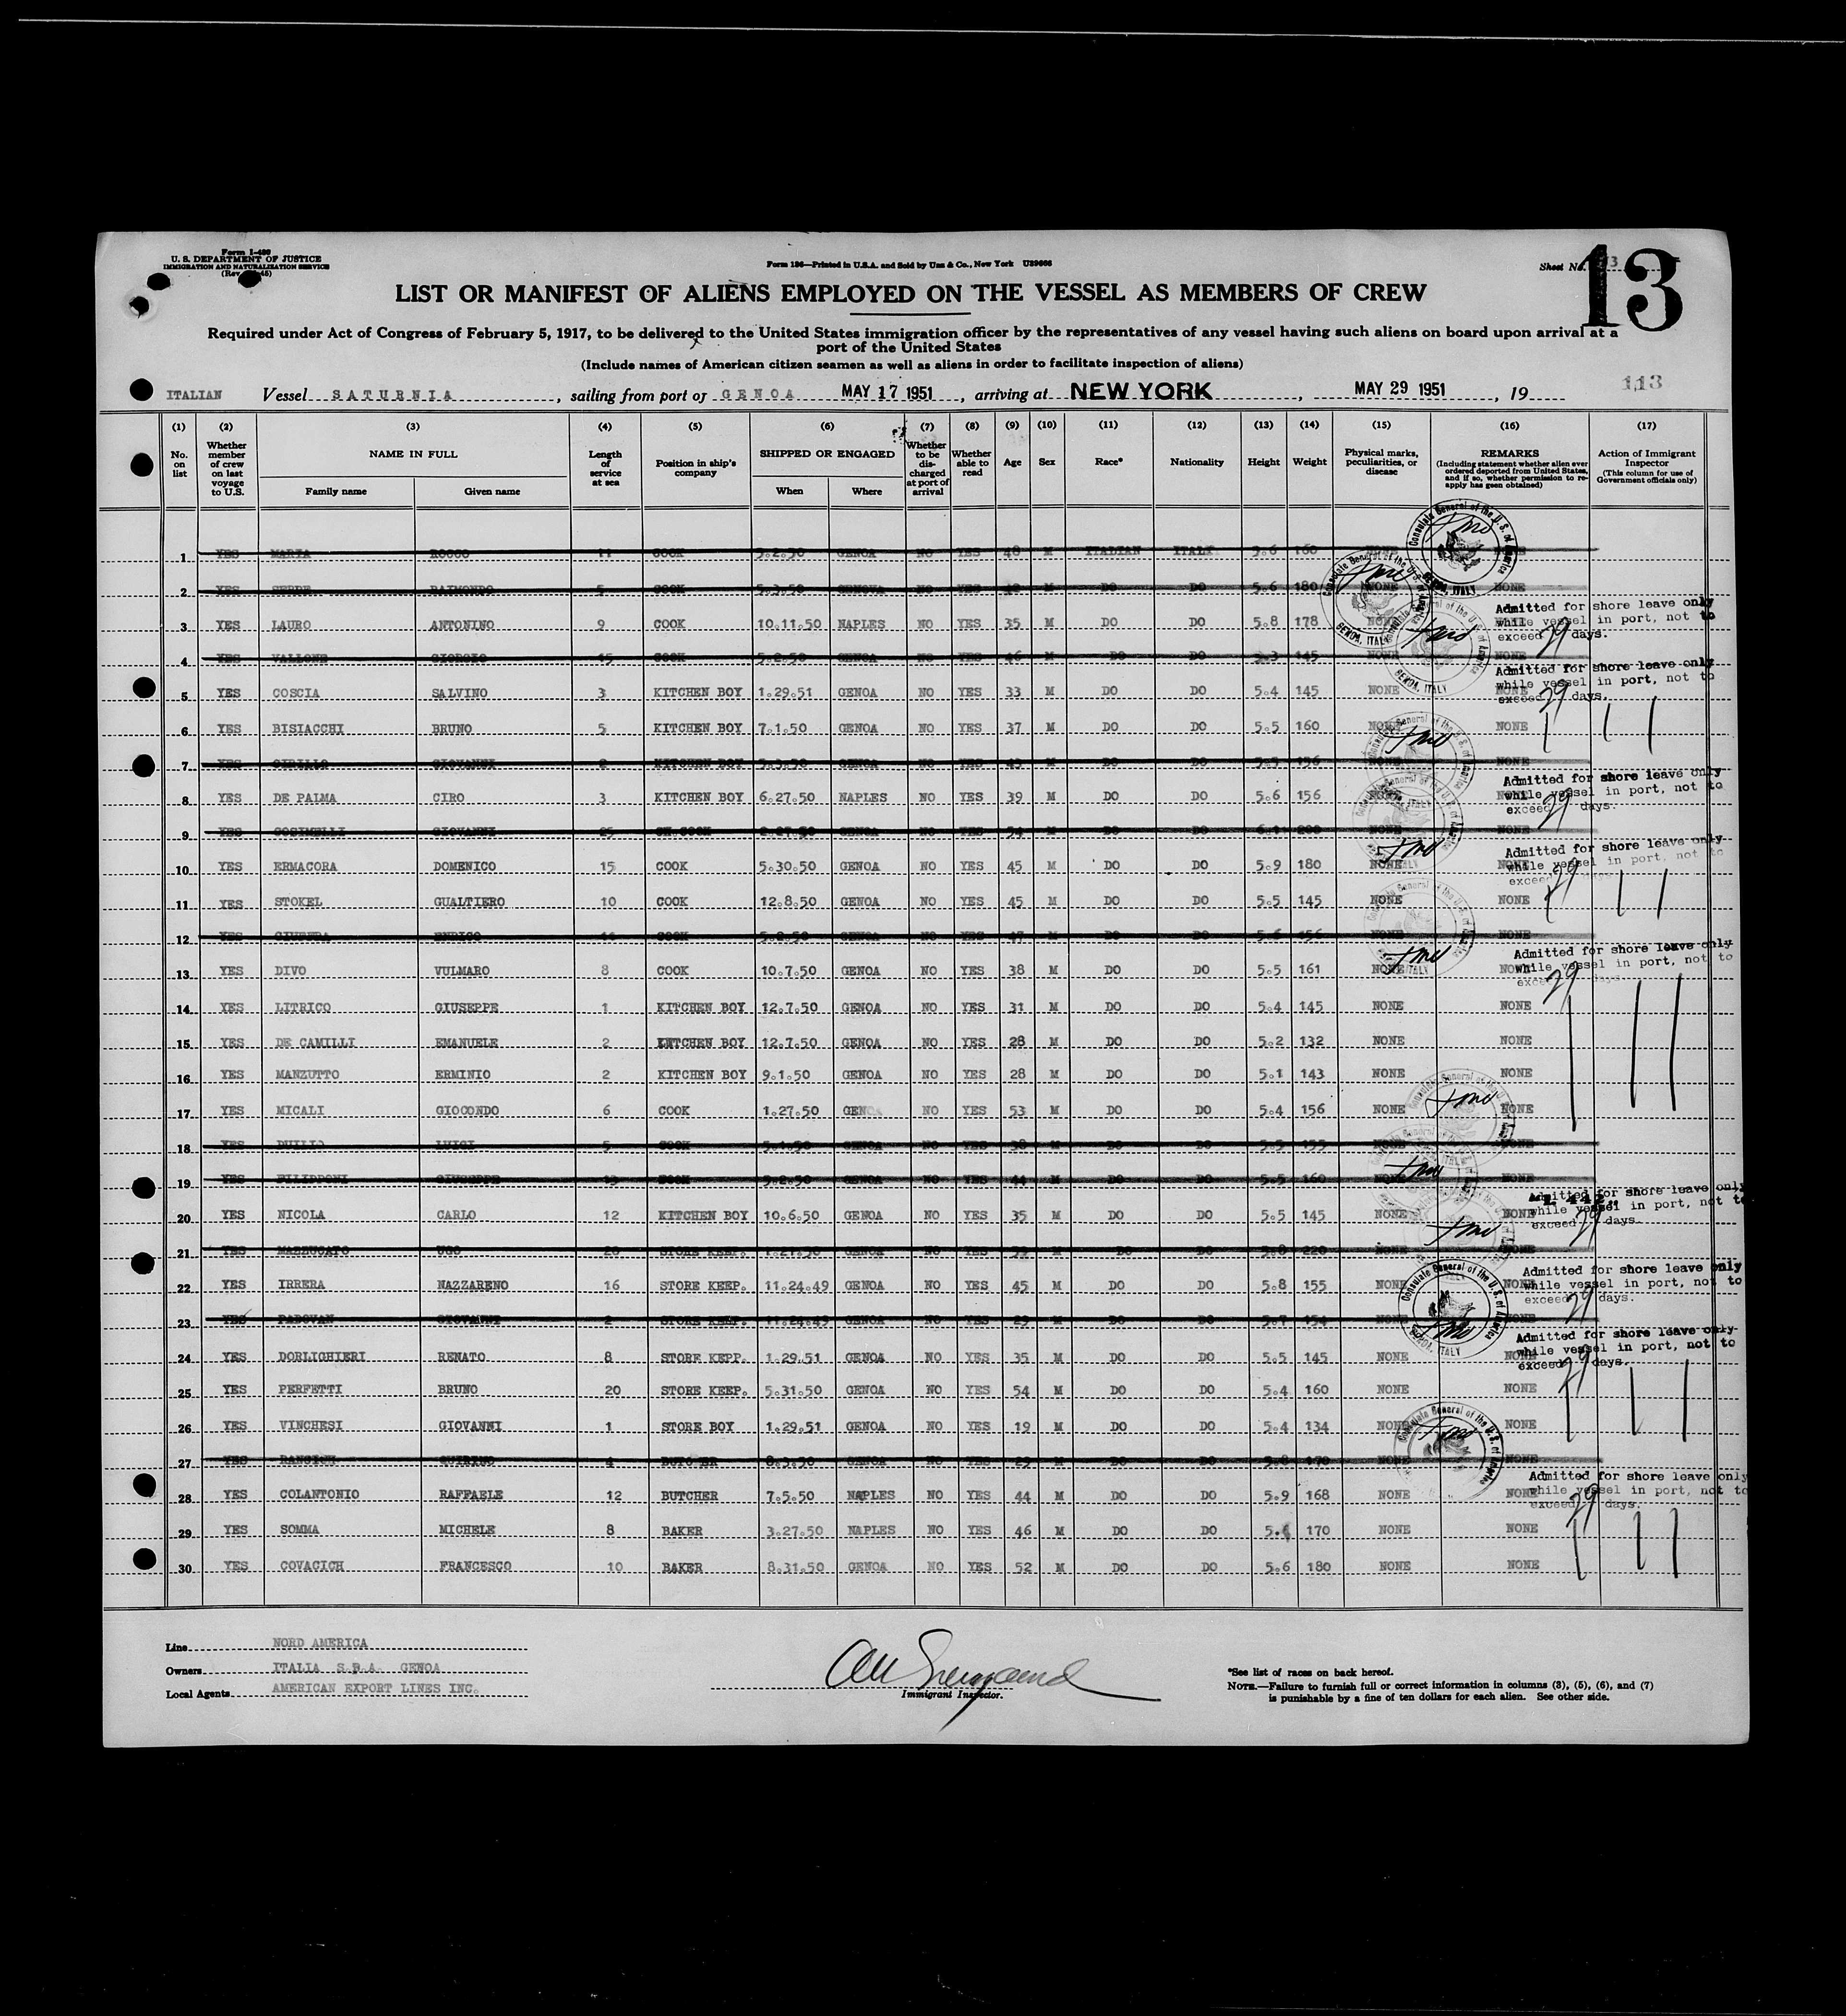 Form I-480
U. S. DEPARTMENT OF JUSTICE
IMMIGRATION AND NATURALIZATION SERVICE
Form 186—Printed in U.S.A. and Sold by Unz & Co., New York
Sheet No. 13
13
LIST OR MANIFEST OF ALIENS EMPLOYED ON THE VESSEL AS MEMBERS OF CREW
Required under Act of Congress of February 5, 1917, to be delivered to the United States immigration officer by the representatives of any vessel having such aliens on board upon arrival at a
port of the United States
(Include names of American citizen seamen as well as aliens in order to facilitate inspection of aliens)
ITALIAN Vessel SATURNIA, sailing from port of GENOA MAY 17 1951, arriving at NEW YORK, MAY 29 1951, 19 113
(1) (2) (3) (4) (5) (6) (7) (8) (9) (10) (11) (12) (13) (14) (15) (16) (17)
No. on list
Whether member of crew on last voyage to U.S.
NAME IN FULL
Family name
Given name
Length of service at sea
Position in ship's company
SHIPPED OR ENGAGED
When
Where
Whether to be discharged at port of arrival
Whether able to read
Age
Sex
Race*
Nationality
Height
Weight
Physical marks, peculiarities, or disease
REMARKS
(Including statement whether alien ever ordered deported from United States, and if so, whether permission to re-apply has been obtained)
Action of Immigrant Inspector
(This column for use of Government officials only)
1 YES MARIA ROCCO 11 COOK 5.2.50 GENOA NO YES 48 M ITALIAN ITALY 5.6 160 NONE NONE
2 YES SERRE RAIMONDO 5 COOK 5.3.50 GENOVA NO YES 42 M DO DO 5.6 180 NONE NONE
3 YES LAURO ANTONINO 9 COOK 10.11.50 NAPLES NO YES 35 M DO DO 5.8 178 NONE
Admitted for shore leave only while vessel in port, not to exceed 29 days.
4 YES VALLONE GIORGIO 15 COOK 5.2.50 GENOA NO YES 46 M DO DO 5.3 145 NONE NONE
5 YES COSCIA SALVINO 3 KITCHEN BOY 1.29.51 GENOA NO YES 33 M DO DO 5.4 145 NONE NONE
Admitted for shore leave only while vessel in port, not to exceed 29 days.
6 YES BISIACCHI BRUNO 5 KITCHEN BOY 7.1.50 GENOA NO YES 37 M DO DO 5.5 160 NONE NONE
7 YES CIRILLO GIOVANNI KITCHEN BOY 5.3.50 GENOA NO YES 43 M DO DO 5.5 156 NONE NONE
8 YES DE PALMA CIRO 3 KITCHEN BOY 6.27.50 NAPLES NO YES 39 M DO DO 5.6 156 NONE NONE
Admitted for shore leave only while vessel in port, not to exceed 29 days.
9 YES COSIMELLI GIOVANNI 25 COOK 2.27.50 GENOA NO YES 54 M DO DO 6.1 200 NONE NONE
10 YES ERMACORA DOMENICO 15 COOK 5.30.50 GENOA NO YES 45 M DO DO 5.9 180 NONE NONE
Admitted for shore leave only while vessel in port, not to exceed 29 days.
11 YES STOKEL GUALTIERO 10 COOK 12.8.50 GENOA NO YES 45 M DO DO 5.5 145 NONE NONE
12 YES ENRICO COOK 5.2.50 GENOA NO YES 47 M DO DO 5.6 156 NONE NONE
13 YES DIVO VULMARO 8 COOK 10.7.50 GENOA NO YES 38 M DO DO 5.5 161 NONE NONE
Admitted for shore leave only while vessel in port, not to exceed 29 days
14 YES LITRICO GIUSEPPE 1 KITCHEN BOY 12.7.50 GENOA NO YES 31 M DO DO 5.4 145 NONE NONE
15 YES DE CAMILLI EMANUELE 2 KETCHEN BOY 12.7.50 GENOA NO YES 28 M DO DO 5.2 132 NONE NONE
16 YES MANZUTTO ERMINIO 2 KITCHEN BOY 9.1.50 GENOA NO YES 28 M DO DO 5.1 143 NONE NONE
17 YES MICALI GIOCONDO 6 COOK 1.27.50 GENOA NO YES 53 M DO DO 5.4 156 NONE NONE
18 YES DUILLO LUIGI 5 COOK 5.1.50 GENOA NO YES 38 M DO DO 5.5 155 NONE NONE
19 YES FILIPPONI GIUSEPPE 13 COOK 5.2.50 GENOA NO YES 44 M DO DO 5.5 160 NONE NONE
20 YES NICOLA CARLO 12 KITCHEN BOY 10.6.50 GENOA NO YES 35 M DO DO 5.5 145 NONE NONE
Admitted for shore leave only while vessel in port, not to exceed 29 days.
21 YES MAZZUCATO UGO 20 STORE KEEP. 1.27.50 GENOA NO YES 59 M DO DO 5.8 220 NONE NONE
22 YES IRRERA NAZZARENO 16 STORE KEEP. 11.24.49 GENOA NO YES 45 M DO DO 5.8 155 NONE NONE
Admitted for shore leave only while vessel in port, not to exceed 29 days.
23 YES PADOVAN GIOVANNI 2 STORE KEEP. 11.24.49 GENOA NO YES 29 M DO DO 5.7 154 NONE NONE
24 YES DORLIGHIERI RENATO 8 STORE KEPP. 1.29.51 GENOA NO YES 35 M DO DO 5.5 145 NONE NONE
Admitted for shore leave only while vessel in port, not to exceed 29 days.
25 YES PERFETTI BRUNO 20 STORE KEEP. 5.31.50 GENOA NO YES 54 M DO DO 5.4 160 NONE NONE
26 YES VINCHESI GIOVANNI 1 STORE BOY 1.29.51 GENOA NO YES 19 M DO DO 5.4 134 NONE NONE
27 YES QUIRINO 4 8.3.50 GENOA NO YES 29 M DO DO 5.8 170 NONE NONE
28 YES COLANTONIO RAFFAELE 12 BUTCHER 7.5.50 NAPLES NO YES 44 M DO DO 5.9 168 NONE NONE
Admitted for shore leave only while vessel in port, not to exceed 29 days.
29 YES SOMMA MICHELE 8 BAKER 3.27.50 NAPLES NO YES 46 M DO DO 170 NONE NONE
30 YES COVACICH FRANCESCO 10 BAKER 8.31.50 GENOA NO YES 52 M DO DO 5.6 180 NONE NONE
Consulate General of the U. S. of America GENOA, ITALY
Line NORD AMERICA
Owners ITALIA S.P.A. GENOA
Local Agents AMERICAN EXPORT LINES INC.
Immigrant Inspector.
*See list of races on back hereof.
NOTE.—Failure to furnish full or correct information in columns (3), (5), (6), and (7)
is punishable by a fine of ten dollars for each alien. See other side.